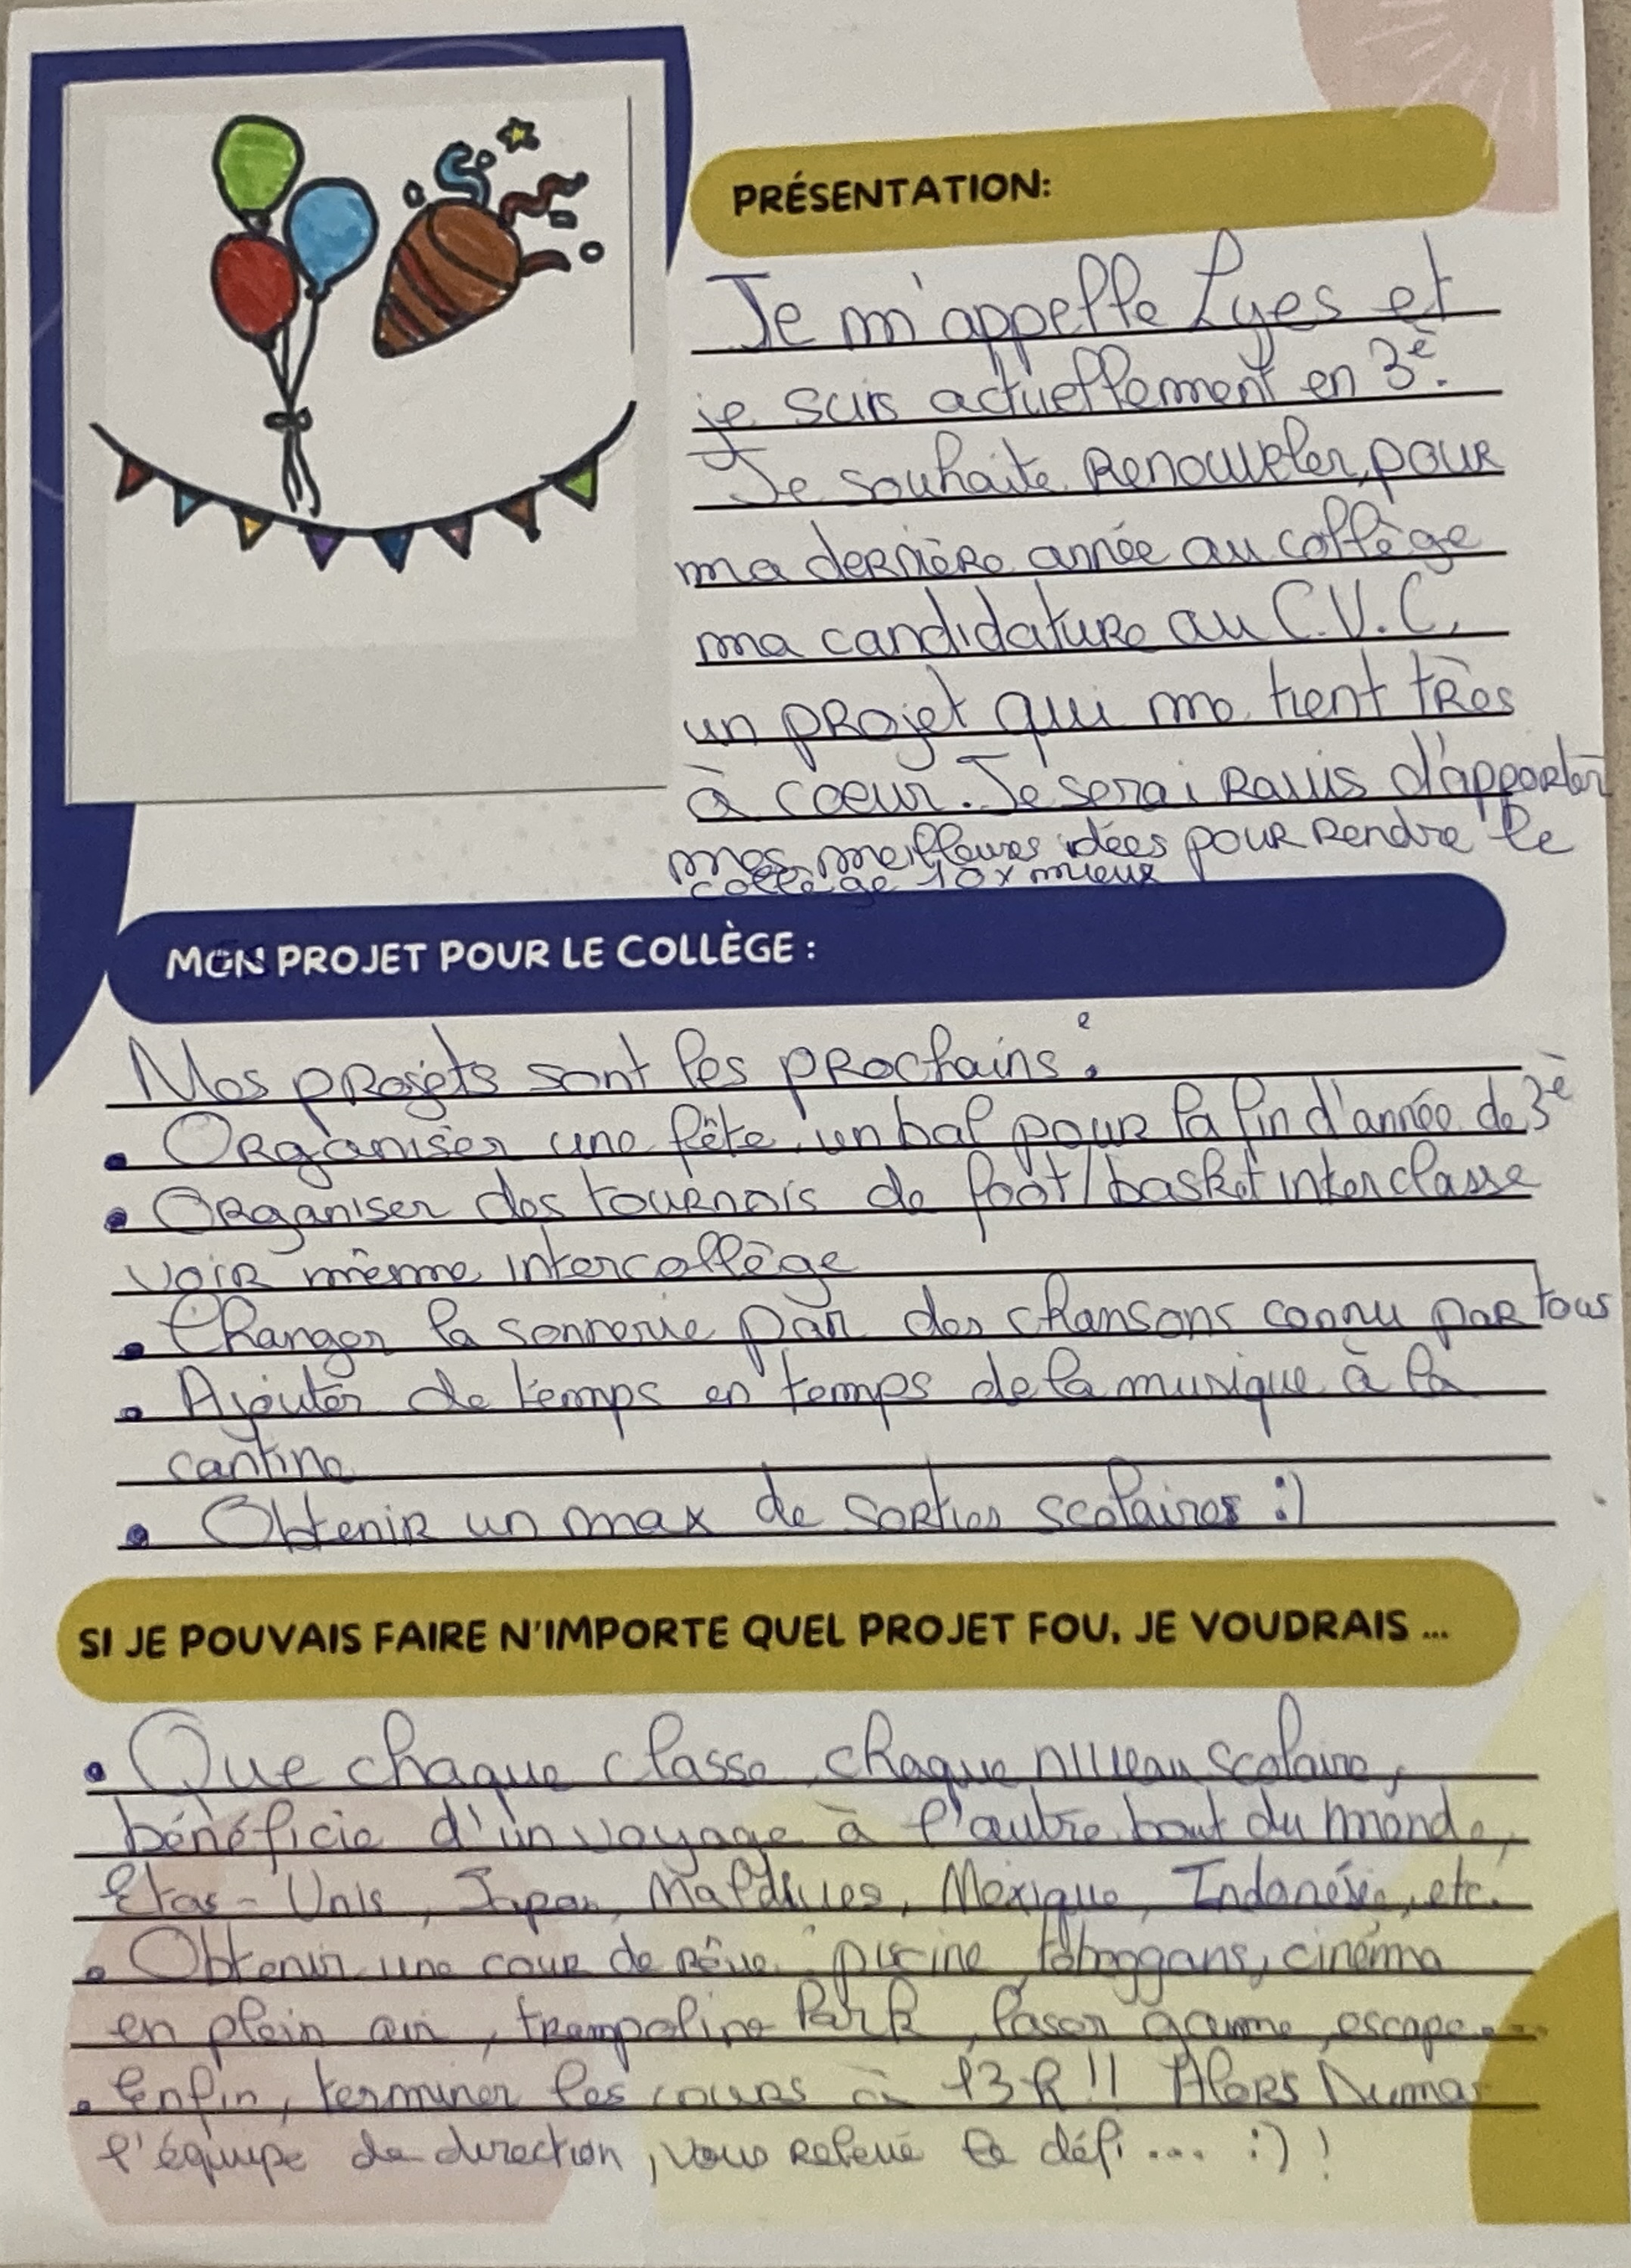 PRÉSENTATION:
Je m'appelle Lyes et
je suis actuellement en 3è.
Je souhaite renouveler, pour
ma dernière année au collège
ma candidature au C.V.C,
un projet qui me tient très
à coeur. Je serai ravis d'apporter
mes meilleures idées pour rendre le
collège 10x mieux
MON PROJET POUR LE COLLÈGE :
Mes projets sont les prochains :
• Organiser une fête, un bal pour la fin d'année de 3è
• Organiser des tournois de foot/basket interclasse
voir même intercollège
• Changer la sonnerie par des chansons connu par tous
• Ajouter de temps en temps de la musique à la
cantine
• Obtenir un max de sorties scolaires :)
SI JE POUVAIS FAIRE N'IMPORTE QUEL PROJET FOU, JE VOUDRAIS ...
• Que chaque classe, chaque niveau scolaire,
bénéficie d'un voyage à l'autre bout du monde,
Etas-Unis, Japon, Maldives, Mexique, Indonésie, etc.
• Obtenir une cour de rêve : piscine, toboggans, cinéma
en plein air, trampoline Park, laser game, escape....
• Enfin, terminer les cours à 13h !! Alors Dumas
l'équipe de direction, vous relevé le défi ... :) !